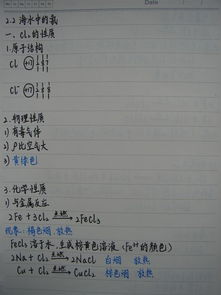 Date
2.2 海水中的氯
一、Cl₂的性质
1.原子结构
Cl (+17) 2 8 7
Cl⁻ (+17) 2 8 8
2.物理性质
1) 有毒气体
2) ρ比空气大
3) 黄绿色
3.化学性质
1) 与金属反应
2Fe + 3Cl₂ 点燃 2FeCl₃
现象: 棕色烟 放热
FeCl₃溶于水,生成棕黄色溶液 (Fe³⁺的颜色)
2Na + Cl₂ 点燃 2NaCl 白烟 放热
Cu + Cl₂ 点燃 CuCl₂ 棕色烟 放热